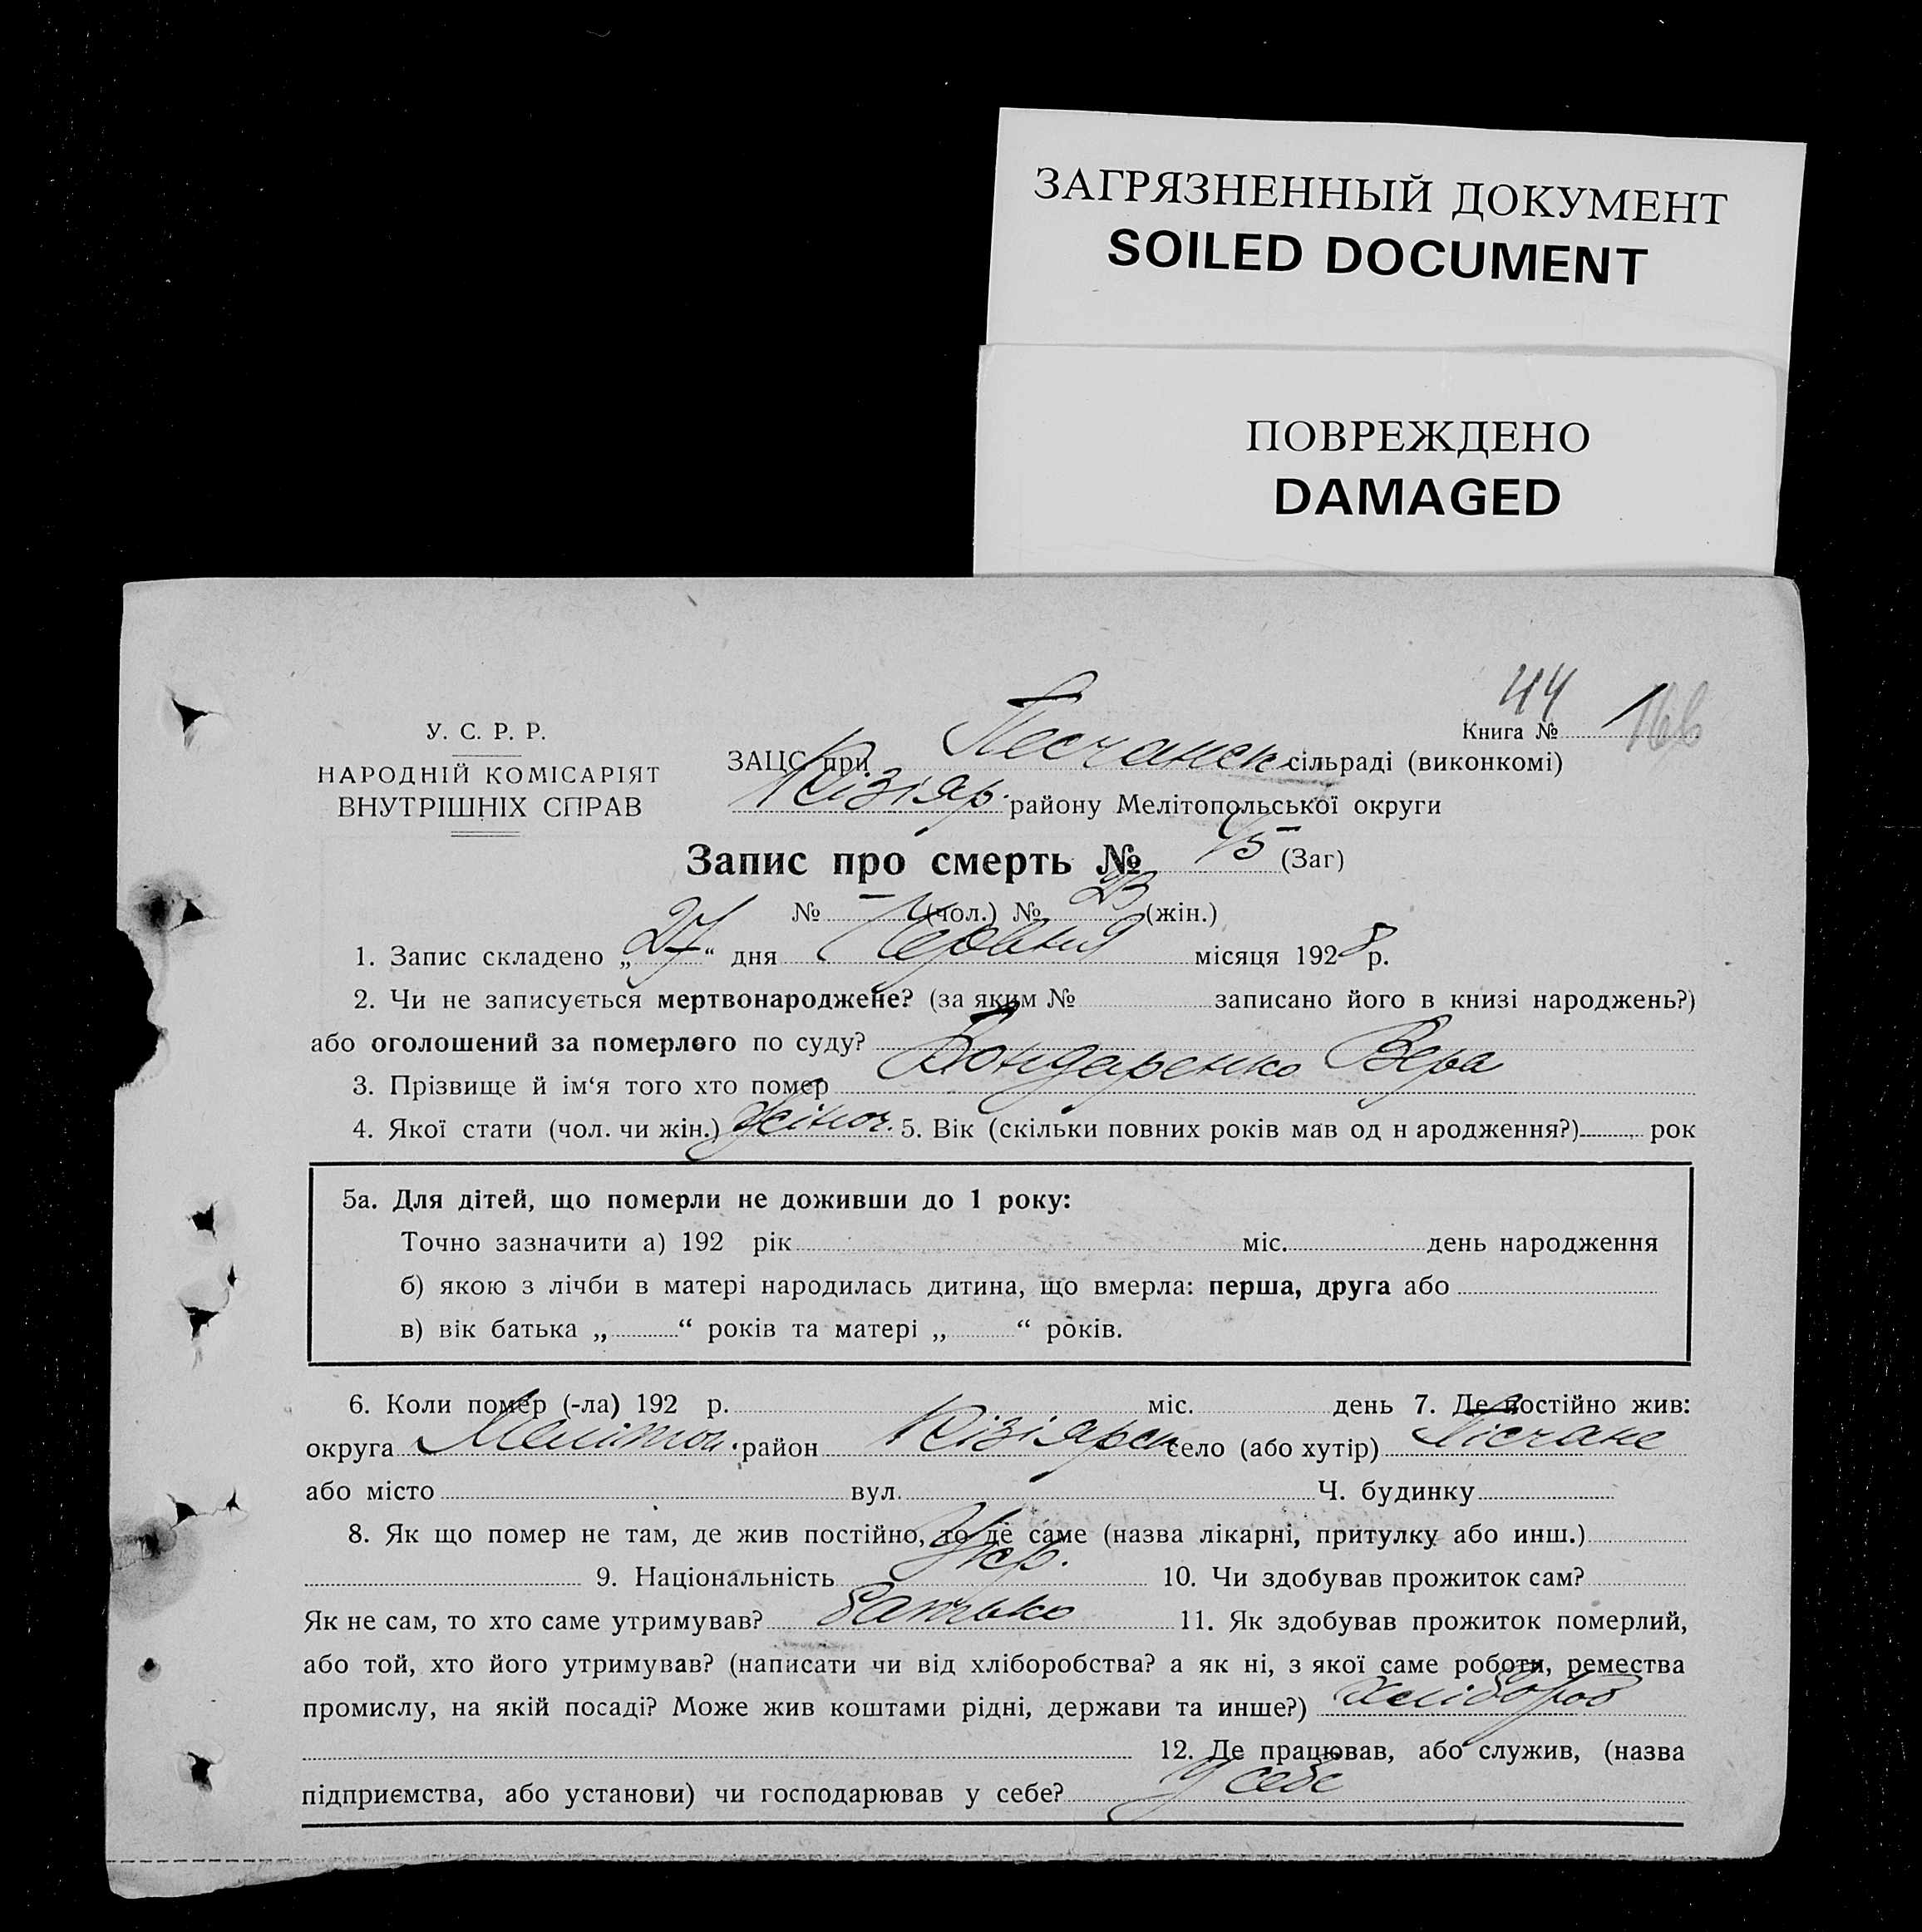 ЗАГРЯЗНЕННЫЙ ДОКУМЕНТ
SOILED DOCUMENT
ПОВРЕЖДЕНО
DAMAGED
44
Книга № 1
У. С. Р. Р.
НАРОДНІЙ КОМІСАРІЯТ
ВНУТРІШНІХ СПРАВ
ЗАЦС при Песчанск сільраді (виконкомі)
Кізіяр. району Мелітопольської округи
Запис про смерть № 45 (Заг)
№ — (чол.) № 23 (жін.)
1. Запис складено „27“ дня Червня місяця 1928 р.
2. Чи не записується мертвонароджене? (за яким № записано його в книзі народжень?)
або оголошений за померлого по суду?
3. Прізвище й ім‘я того хто помер Бондаренко Вера
4. Якої стати (чол. чи жін.) Жіноч. 5. Вік (скільки повних років мав од н ародження?) рок
5а. Для дітей, що померли не доживши до 1 року:
Точно зазначити а) 192 рік міс. день народження
б) якою з лічби в матері народилась дитина, що вмерла: перша, друга або
в) вік батька „ “ років та матері „ “ років.
6. Коли помер (-ла) 192 р. міс. день 7. Де постійно жив:
округа Мелітоп. район Кізіярск село (або хутір) Пісчане
або місто вул. Ч. будинку
8. Як що помер не там, де жив постійно, то де саме (назва лікарні, притулку або инш.)
9. Національність Укр. 10. Чи здобував прожиток сам?
Як не сам, то хто саме утримував? батько 11. Як здобував прожиток померлий,
або той, хто його утримував? (написати чи від хліборобства? а як ні, з якої саме роботи, ремества
промислу, на якій посаді? Може жив коштами рідні, держави та инше?) хлібороб
12. Де працював, або служив, (назва
підприємства, або установи) чи господарював у себе? у себе